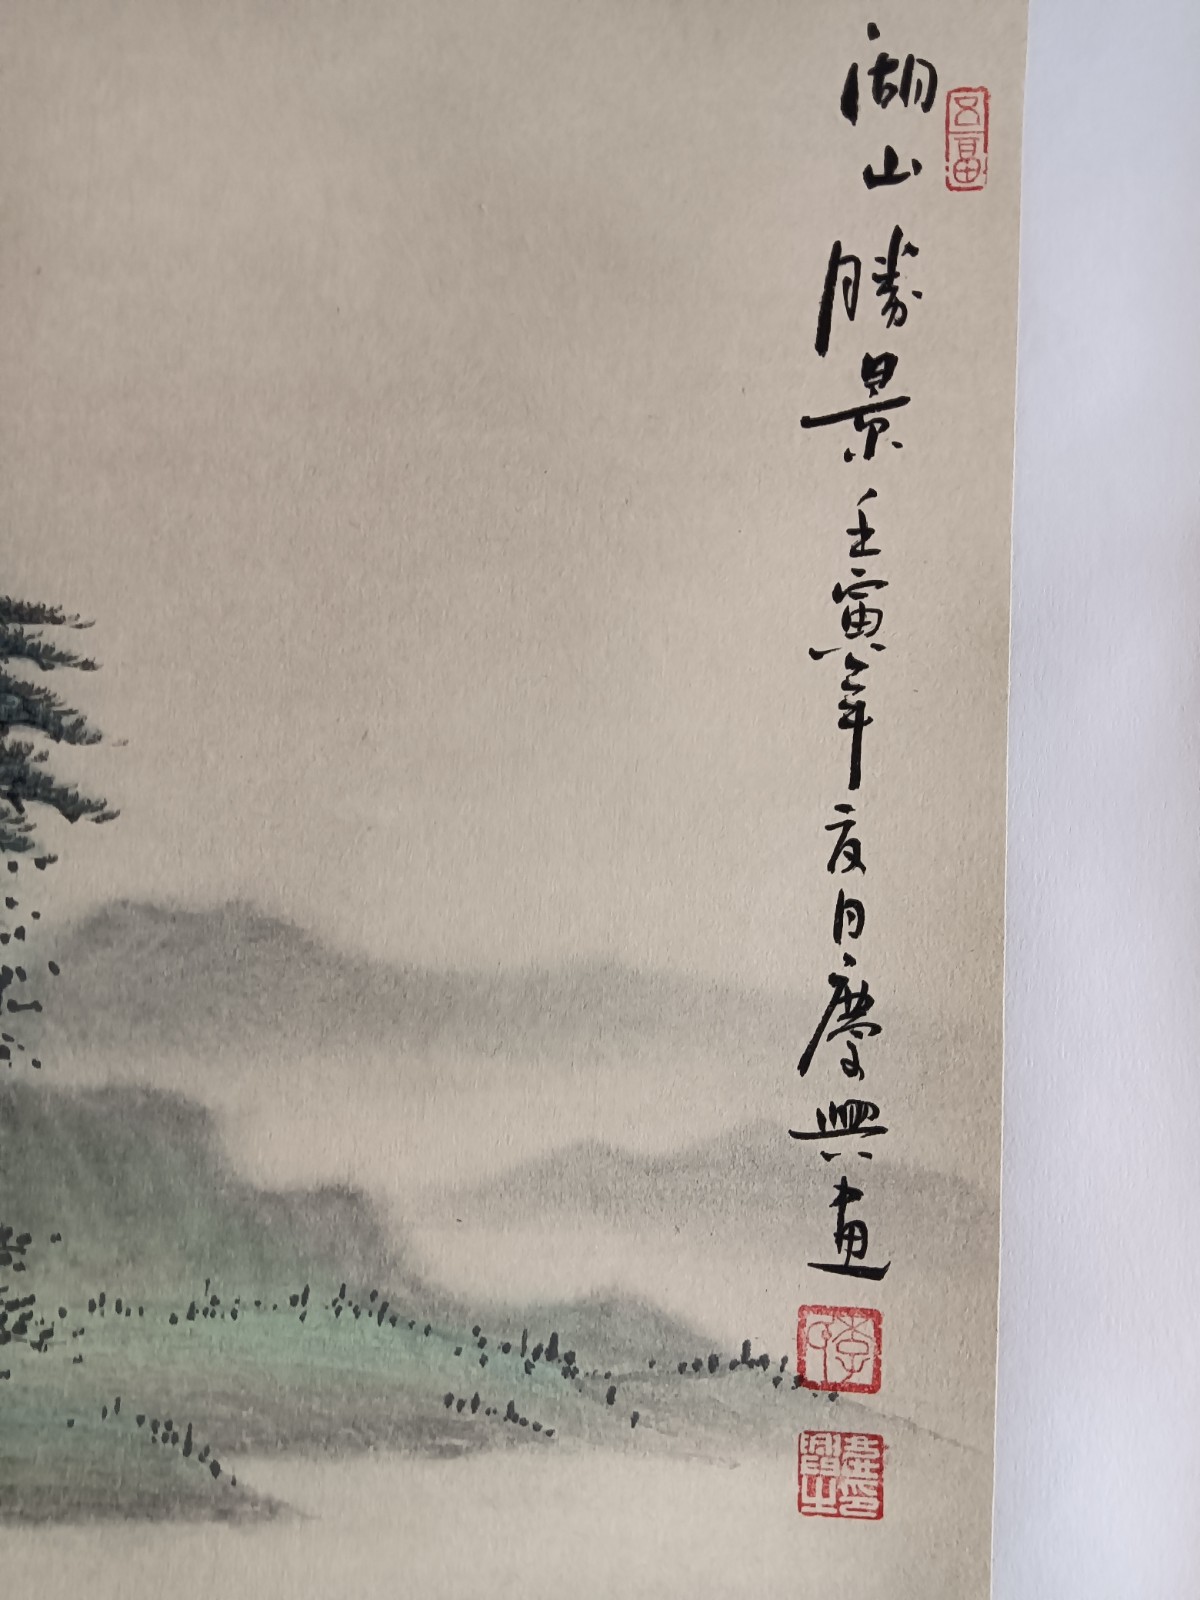 湖山勝景壬寅年夏月慶興畫